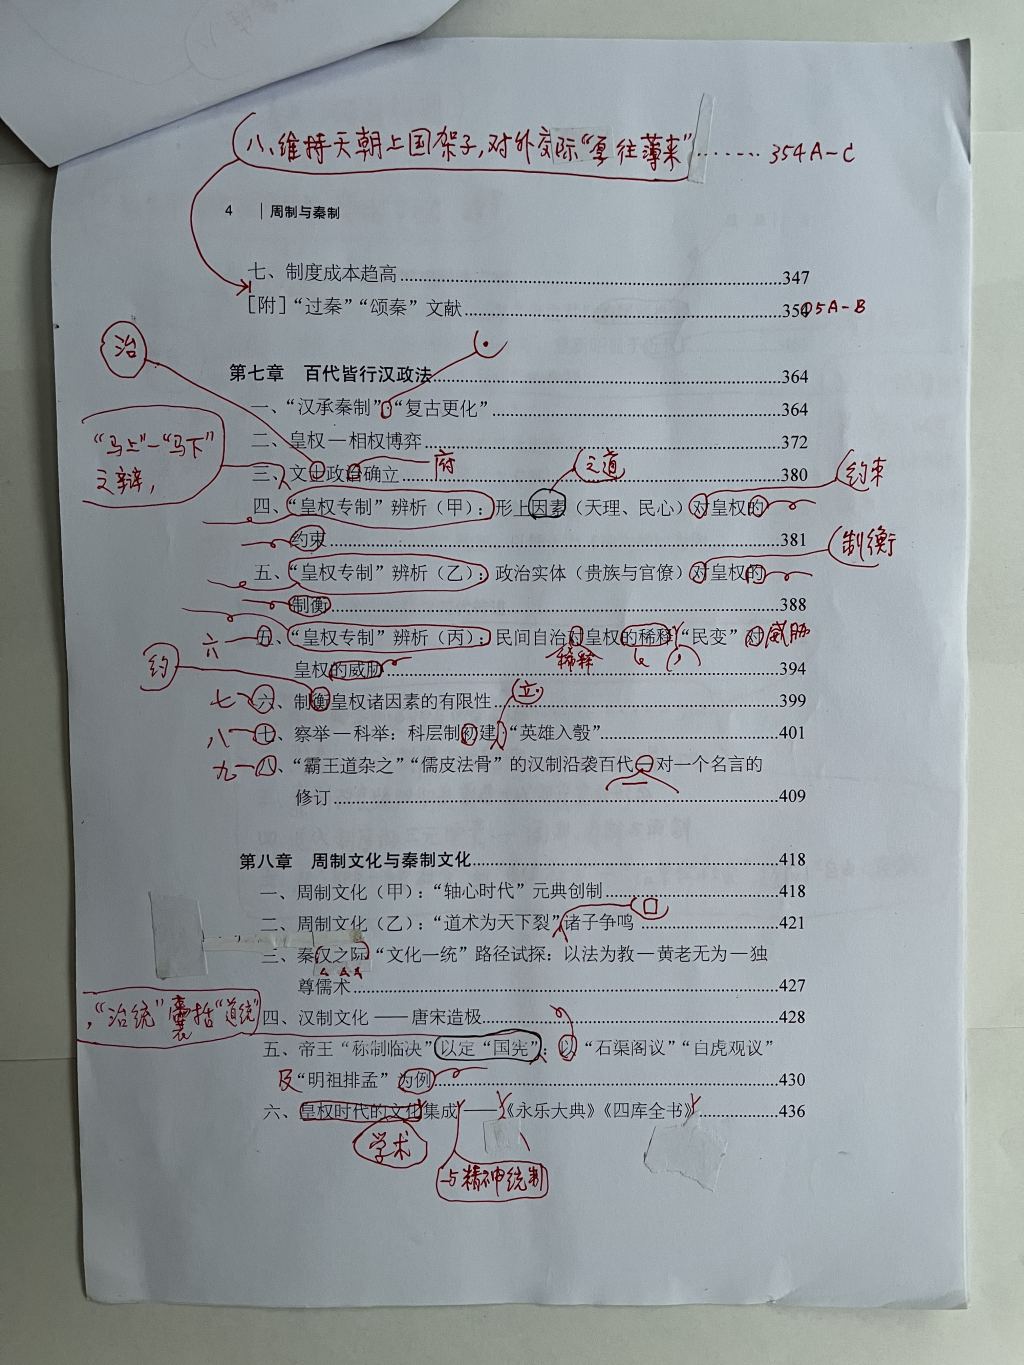 八、维持天朝上国架子,对外交际“厚往薄来”……354A-C
4 | 周制与秦制
七、制度成本趋高……347
[附]“过秦”“颂秦”文献……350
05A-B
治
第七章 百代皆行汉政法……364
一、“汉承秦制”“复古更化”……364
二、皇权—相权博弈……372
“马上”-“马下”
之辩,
府
之道
约束
三、文士政治确立……380
四、“皇权专制”辨析(甲):形上因素(天理、民心)对皇权的
约束……381
制衡
五、“皇权专制”辨析(乙):政治实体(贵族与官僚)对皇权的
制衡……388
六
五、“皇权专制”辨析(丙):民间自治对皇权的稀释,“民变”对
威胁
稀释
约
皇权的威胁……394
立
七
六、制衡皇权诸因素的有限性……399
八
七、察举—科举:科层制初建,“英雄入彀”……401
九
八、“霸王道杂之”“儒皮法骨”的汉制沿袭百代——对一个名言的
修订……409
第八章 周制文化与秦制文化……418
一、周制文化(甲):“轴心时代”元典创制……418
二、周制文化(乙):“道术为天下裂”诸子争鸣……421
三、秦汉之际“文化一统”路径试探:以法为教—黄老无为—独
尊儒术……427
,“治统”囊括“道统”
四、汉制文化——唐宋造极……428
五、帝王“称制临决”以定“国宪”:以“石渠阁议”“白虎观议”
及“明祖排孟”为例……430
六、皇权时代的文化集成——《永乐大典》《四库全书》……436
学术
与精神统制